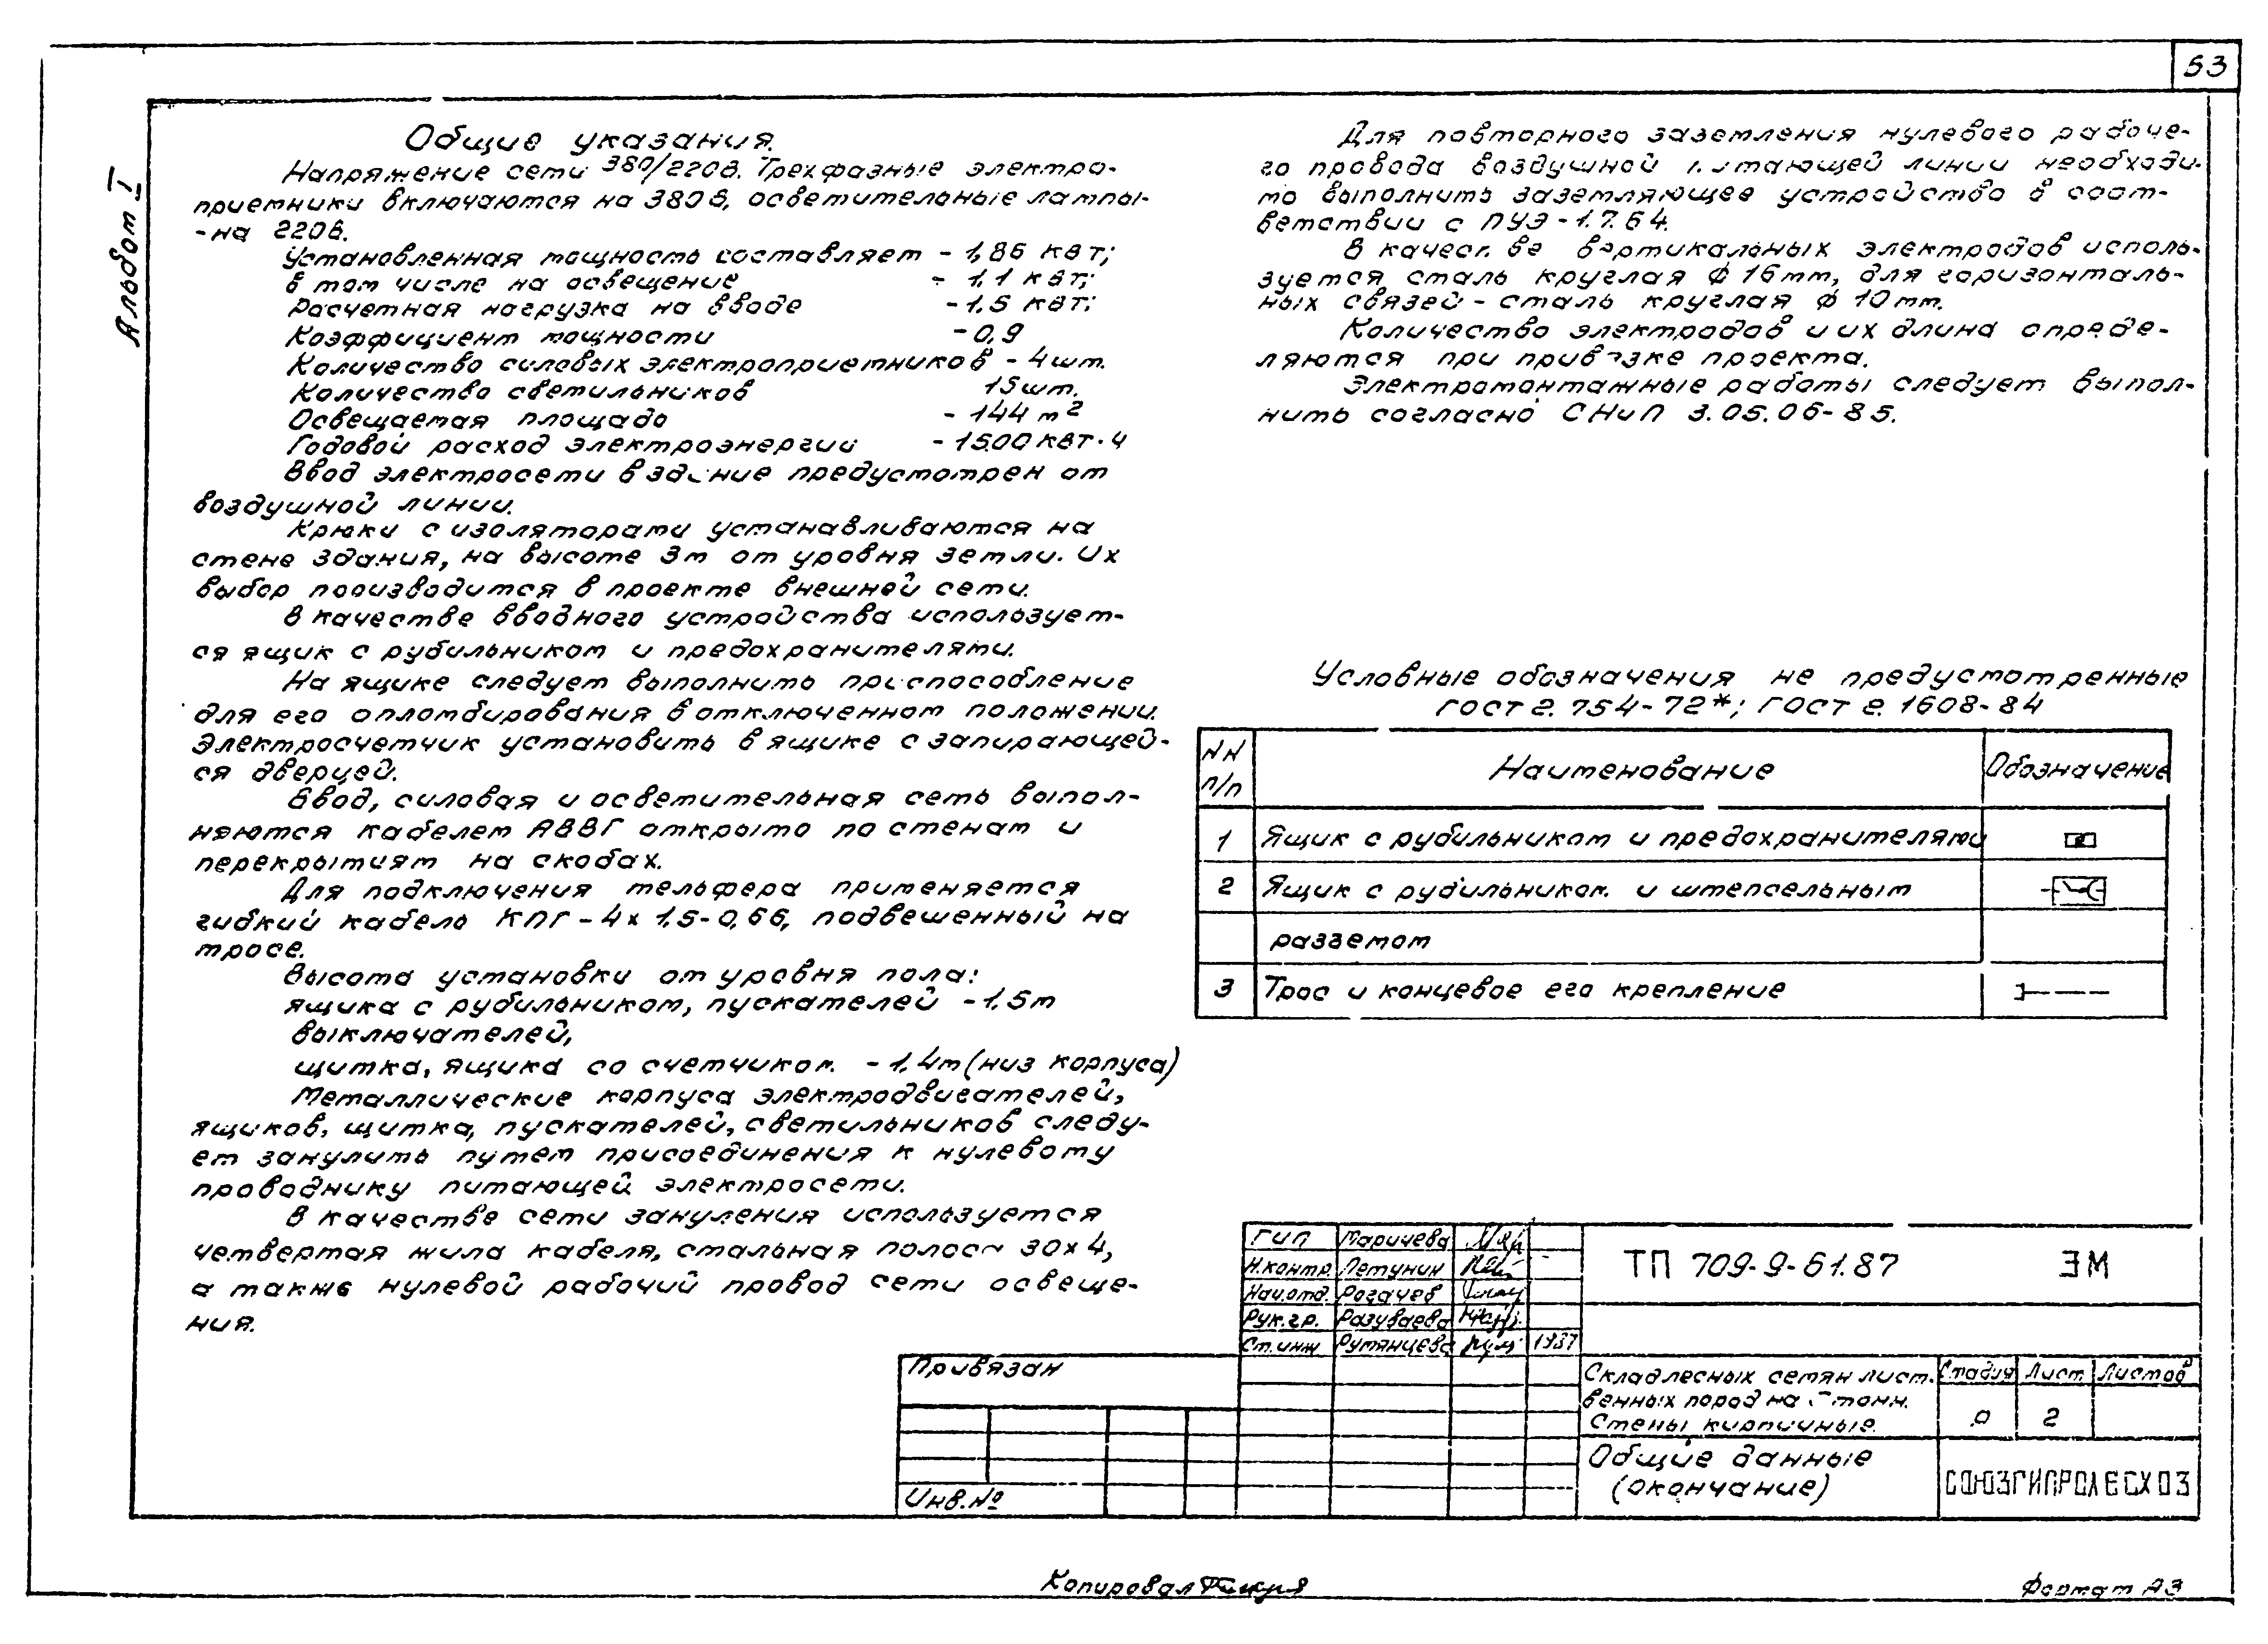 53
Альбом I
Общие указания.
Напряжение сети 380/220В. Трехфазные электро-
приемники включаются на 380В, осветительные лампы-
-на 220В.
Установленная мощность составляет - 1,86 кВт;
в том числе на освещение - 1,1 кВт;
Расчетная нагрузка на вводе - 1,5 кВт;
Коэффициент мощности - 0,9
Количество силовых электроприемников - 4шт.
Количество светильников 15шт.
Освещаемая площадь - 144 м²
Годовой расход электроэнергии - 1500 кВт·ч
Ввод электросети в здание предусмотрен от
воздушной линии.
Крюки с изоляторами устанавливаются на
стене здания, на высоте 3м от уровня земли. Их
выбор производится в проекте внешней сети.
В качестве вводного устройства использует-
ся ящик с рубильником и предохранителями.
На ящике следует выполнить приспособление
для его опломбирования в отключенном положении.
Электросчетчик установить в ящике с запирающей-
ся дверцей.
Ввод, силовая и осветительная сеть выпол-
няются кабелем АВВГ открыто по стенам и
перекрытиям на скобах.
Для подключения тельфера применяется
гибкий кабель КПГ-4х1,5-0,66, подвешенный на
тросе.
Высота установки от уровня пола:
ящика с рубильником, пускателей - 1,5м
выключателей,
щитка, ящика со счетчиком - 1,4м (низ корпуса)
Металлические корпуса электродвигателей,
ящиков, щитка, пускателей, светильников следу-
ет занулить путем присоединения к нулевому
проводнику питающей электросети.
В качестве сети зануления используется
четвертая жила кабеля, стальная полоса 30х4,
а также нулевой рабочий провод сети освеще-
ния.
Для повторного заземления нулевого рабоче-
го провода воздушной питающей линии необходи-
мо выполнить заземляющее устройство в соот-
ветствии с ПУЭ-1.7.64.
В качестве вертикальных электродов исполь-
зуется сталь круглая ф 16мм, для горизонталь-
ных связей - сталь круглая ф 10мм.
Количество электродов и их длина опреде-
ляются при привязке проекта.
Электромонтажные работы следует выпол-
нить согласно СНиП 3.05.06-85.
Условные обозначения не предусмотренные
ГОСТ 2.754-72*; ГОСТ 2.1608-84
NN п/п Наименование Обозначение
1 Ящик с рубильником и предохранителями
2 Ящик с рубильником и штепсельным
разъемом
3 Трос и концевое его крепление
ГИП Маричева
Н.контр. Петунин
Нач.отд. Рогачев
Рук.гр. Разуваева
Ст.инж Румянцева 1987
ТП 709-9-61.87 ЭМ
Привязан
Инв.№
Склад лесных семян лист.
венных пород на тонн.
Стены кирпичные.
Стадия Лист Листов
р 2
Общие данные
(окончание)
СОЮЗГИПРОЛЕСХОЗ
Копировал
Формат А3